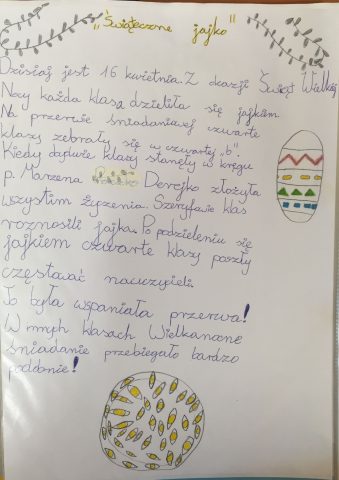 „Świąteczne jajko"
Dzisiaj jest 16 kwietnia. Z okazji Świąt Wielkiej
Nocy każda klasa dzieliła się jajkiem
Na przerwie śniadaniowej czwarte
klasy zebrały się w czwartej „b".
Kiedy obydwie klasy stanęły w kręgu
p. Marzena Derejko złożyła
wszystim życzenia. Szeryfowie klas
roznosili jajka. Po podzieleniu się
jajkiem czwarte klasy poszły
częstować nauczycieli.
To była wspaniała przerwa!
W innych klasach Wielkanocne
śniadanie przebiegało bardzo
podobnie!